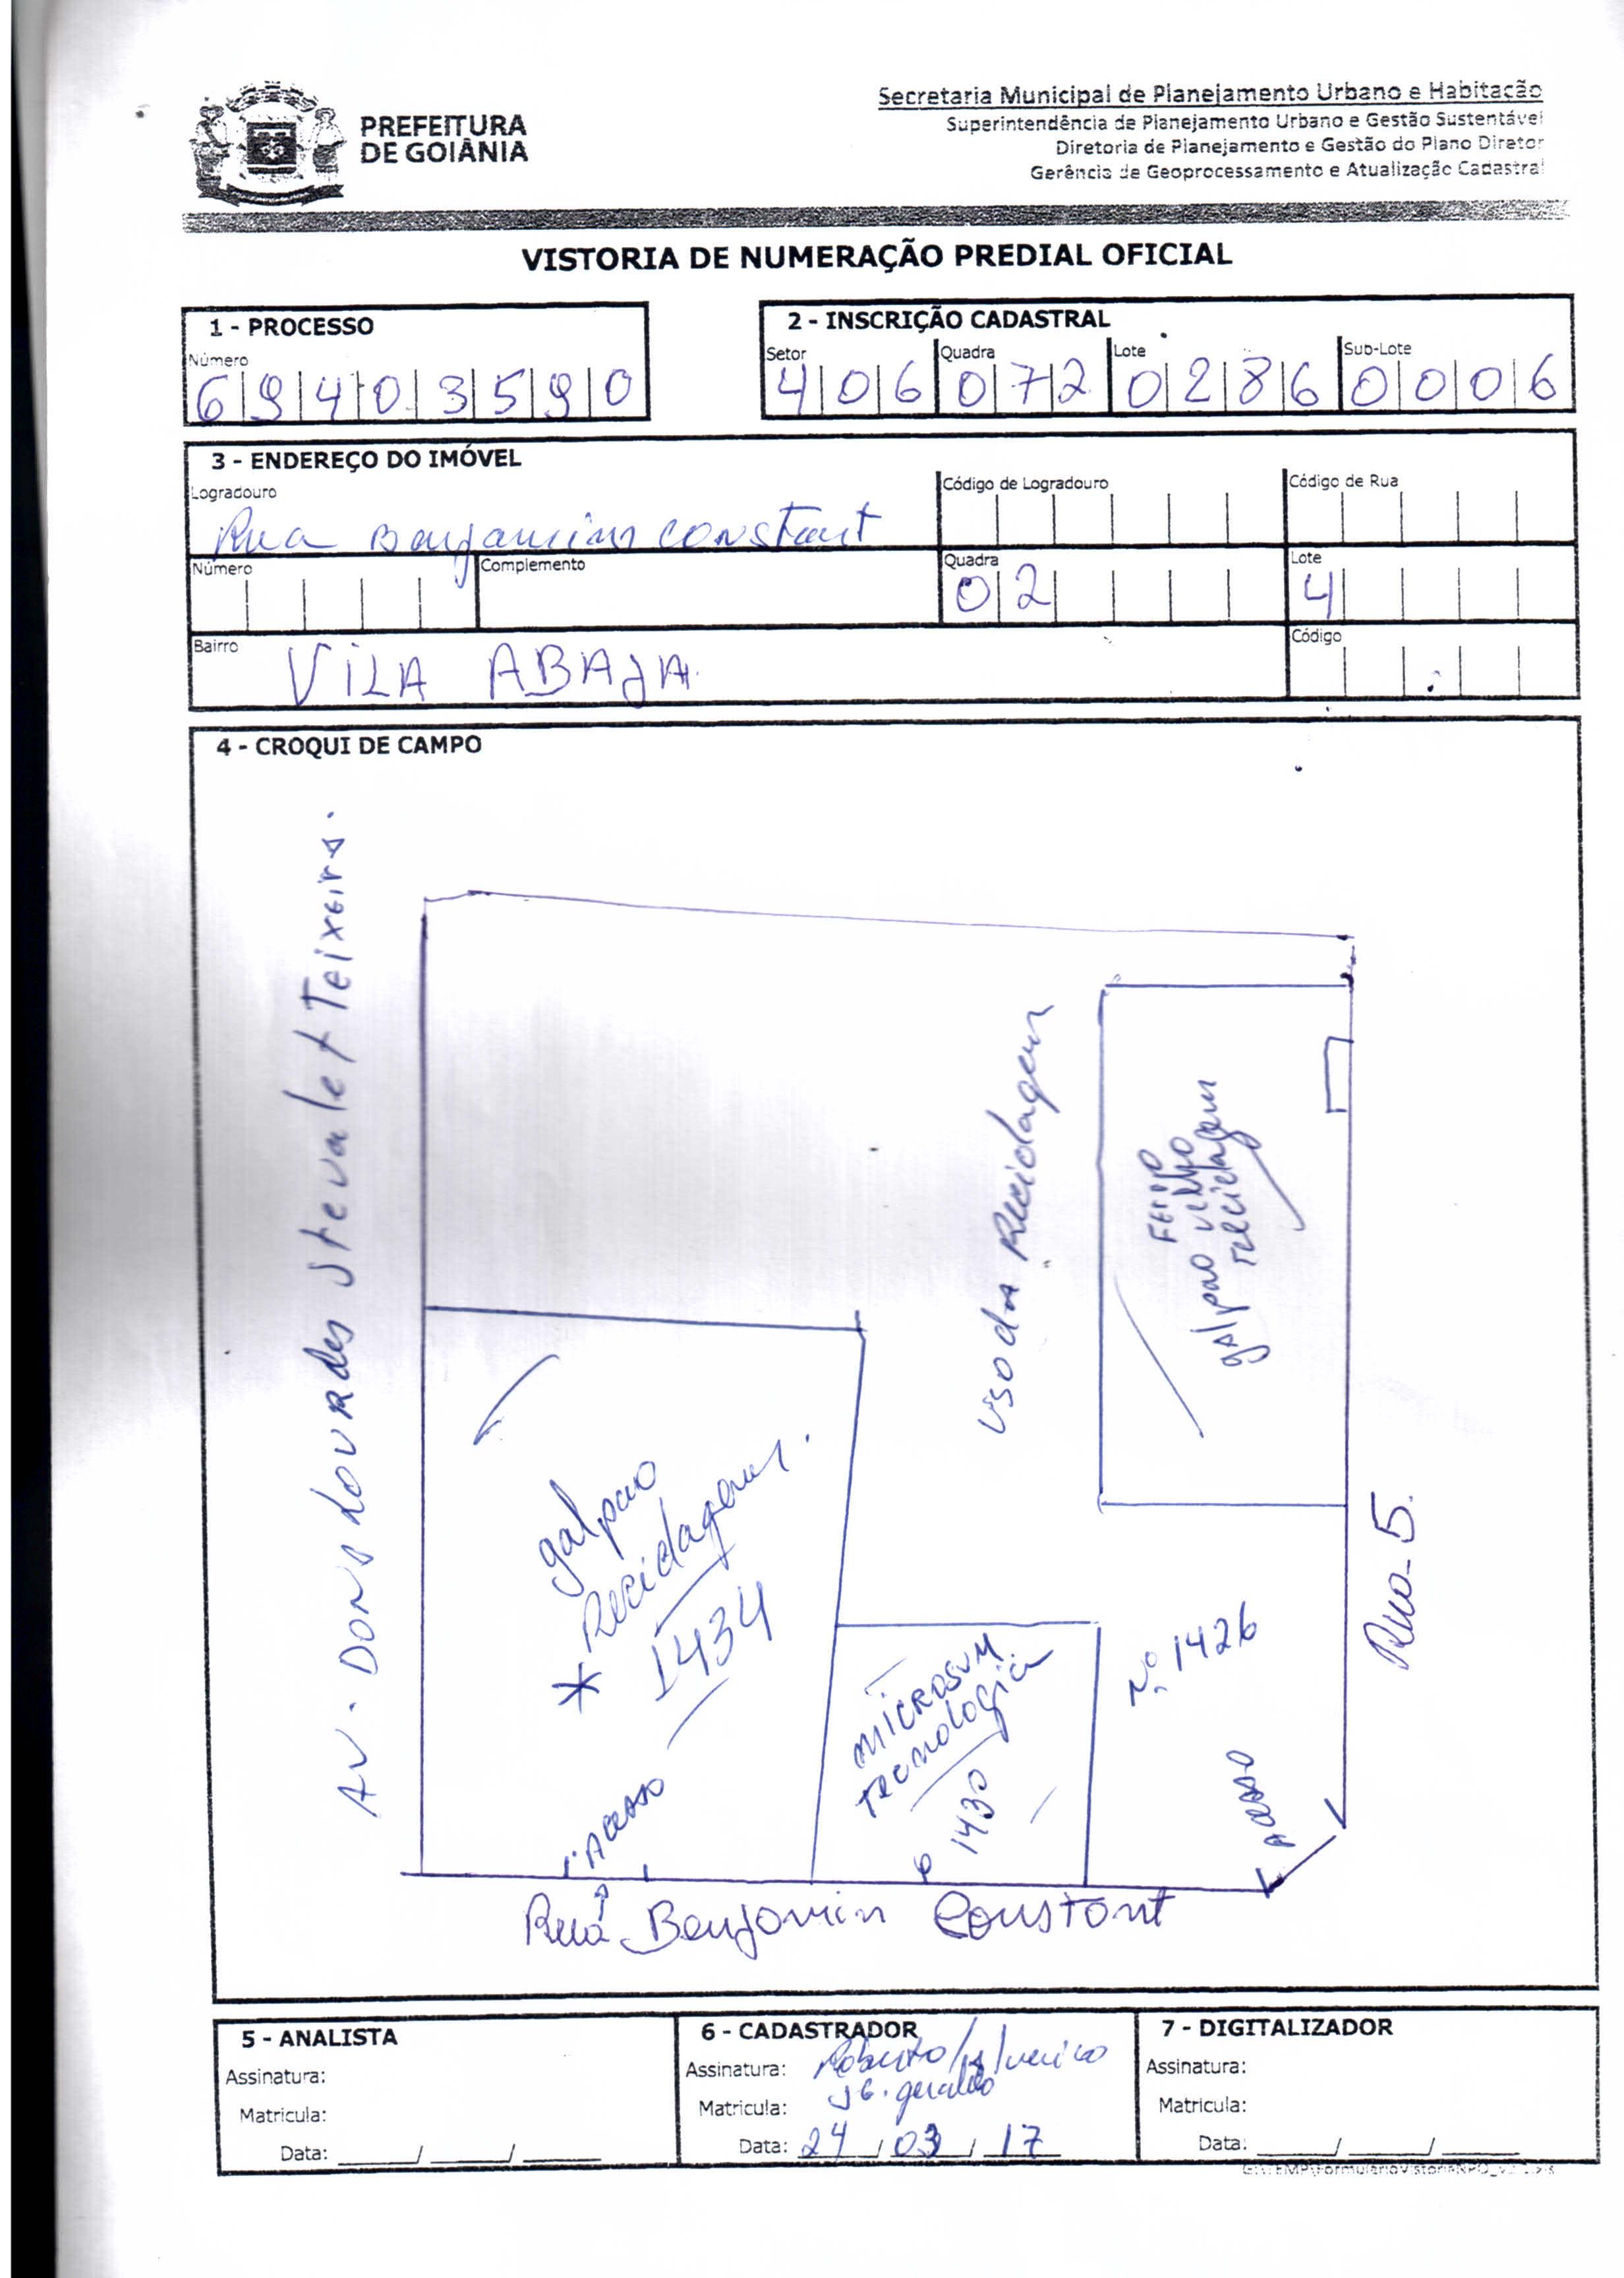 PREFEITURA
DE GOIÂNIA
Secretaria Municipal de Planejamento Urbano e Habitação
Superintendência de Planejamento Urbano e Gestão Sustentável
Diretoria de Planejamento e Gestão do Plano Diretor
Gerência de Geoprocessamento e Atualização Cadastral
VISTORIA DE NUMERAÇÃO PREDIAL OFICIAL
1 - PROCESSO
Número
6 9 4 0 3 5 9 0
2 - INSCRIÇÃO CADASTRAL
Setor Quadra Lote Sub-Lote
4 0 6 0 7 2 0 2 8 6 0 0 0 6
3 - ENDEREÇO DO IMÓVEL
Logradouro Código de Logradouro Código de Rua
Rua Benjamins constant
Número Complemento Quadra Lote
0 2 4
Bairro Código
VILA ABAJA
4 - CROQUI DE CAMPO
Av. Dona Lourdes Stevalet Teixeira.
uso da Reciclagem
Ferro
velho
galpao reciclagem
galpao
* Reciclagem.
1434
Acesso
microsum
tecnologia
1430
nº 1426
Acesso
Rua 5.
Rua Benjamin Constant
5 - ANALISTA
Assinatura:
Matricula:
Data: ___/___/___
6 - CADASTRADOR
Assinatura: Roberto
Matricula: geraldo
Data: 24/03/17
7 - DIGITALIZADOR
Assinatura:
Matricula:
Data: ___/___/___